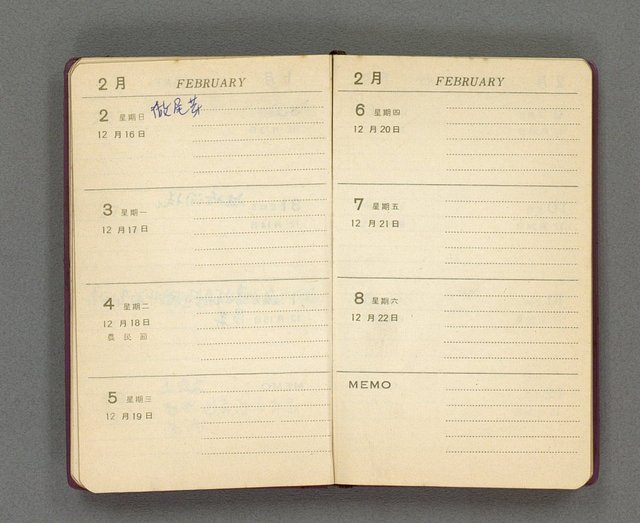 2月 FEBRUARY
2 星期日 做尾牙
12月16日
3 星期一
12月17日
4 星期二
12月18日
農民節
5 星期三
12月19日
2月 FEBRUARY
6 星期四
12月20日
7 星期五
12月21日
8 星期六
12月22日
MEMO